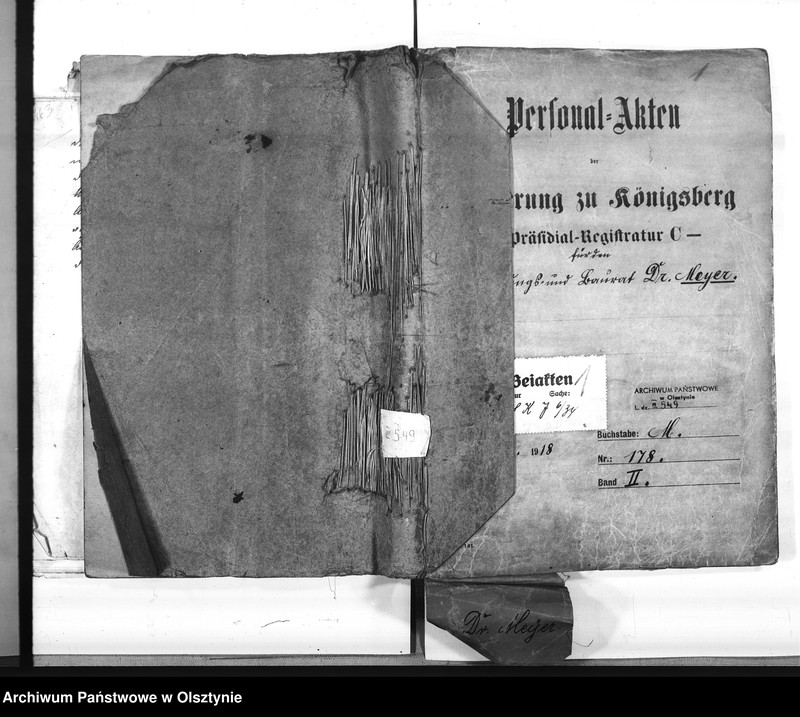 Personal-Akten
der
rung zu Königsberg
Präsidial-Registratur C —
für den
ngs- und Baurat Dr. Meyer.
Beiakten
ur Sache:
K J 6/34
ARCHIWUM PAŃSTWOWE
w Olsztynie
549
549
Buchstabe: M.
1918
Nr.: 178.
Band II.
Dr. Meyer
Archiwum Państwowe w Olsztynie